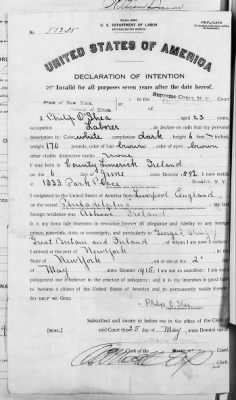 TRIPLICATE
No. 51285
U. S. DEPARTMENT OF LABOR
NATURALIZATION SERVICE
UNITED STATES OF AMERICA
DECLARATION OF INTENTION
Invalid for all purposes seven years after the date hereof.
State of New York,
In the Supreme Court, N. Y. Court
I, Philip O'Shea, aged 23 years,
occupation Laborer, do declare on oath that my personal
description is: Color white, complexion dark, height 5 feet inches,
weight 170 pounds, color of hair brown, color of eyes brown
other visible distinctive marks None
I was born in County Limerick Ireland
on the 6 day of June, anno Domini 1892; I now reside
at 1833 Park Place
I emigrated to the United States of America from Liverpool England
on the vessel Philadelphia; my last
foreign residence was Ireland
It is my bona fide intention to renounce forever all allegiance and fidelity to any foreign
prince, potentate, state, or sovereignty, and particularly to George
Great Britain and Ireland, of whom I am now a subject; I
arrived at the port of New York, in the
State of New York, on or about the 2 day
of May, anno Domini 1915; I am not an anarchist; I am not a
polygamist nor a believer in the practice of polygamy; and it is my intention in good faith
to become a citizen of the United States of America and to permanently reside therein:
SO HELP ME GOD.
Philip O'Shea
Subscribed and sworn to before me in the office of the Clerk of
[SEAL] said Court this 25 day of May, anno Domini
Clerk of the Court.